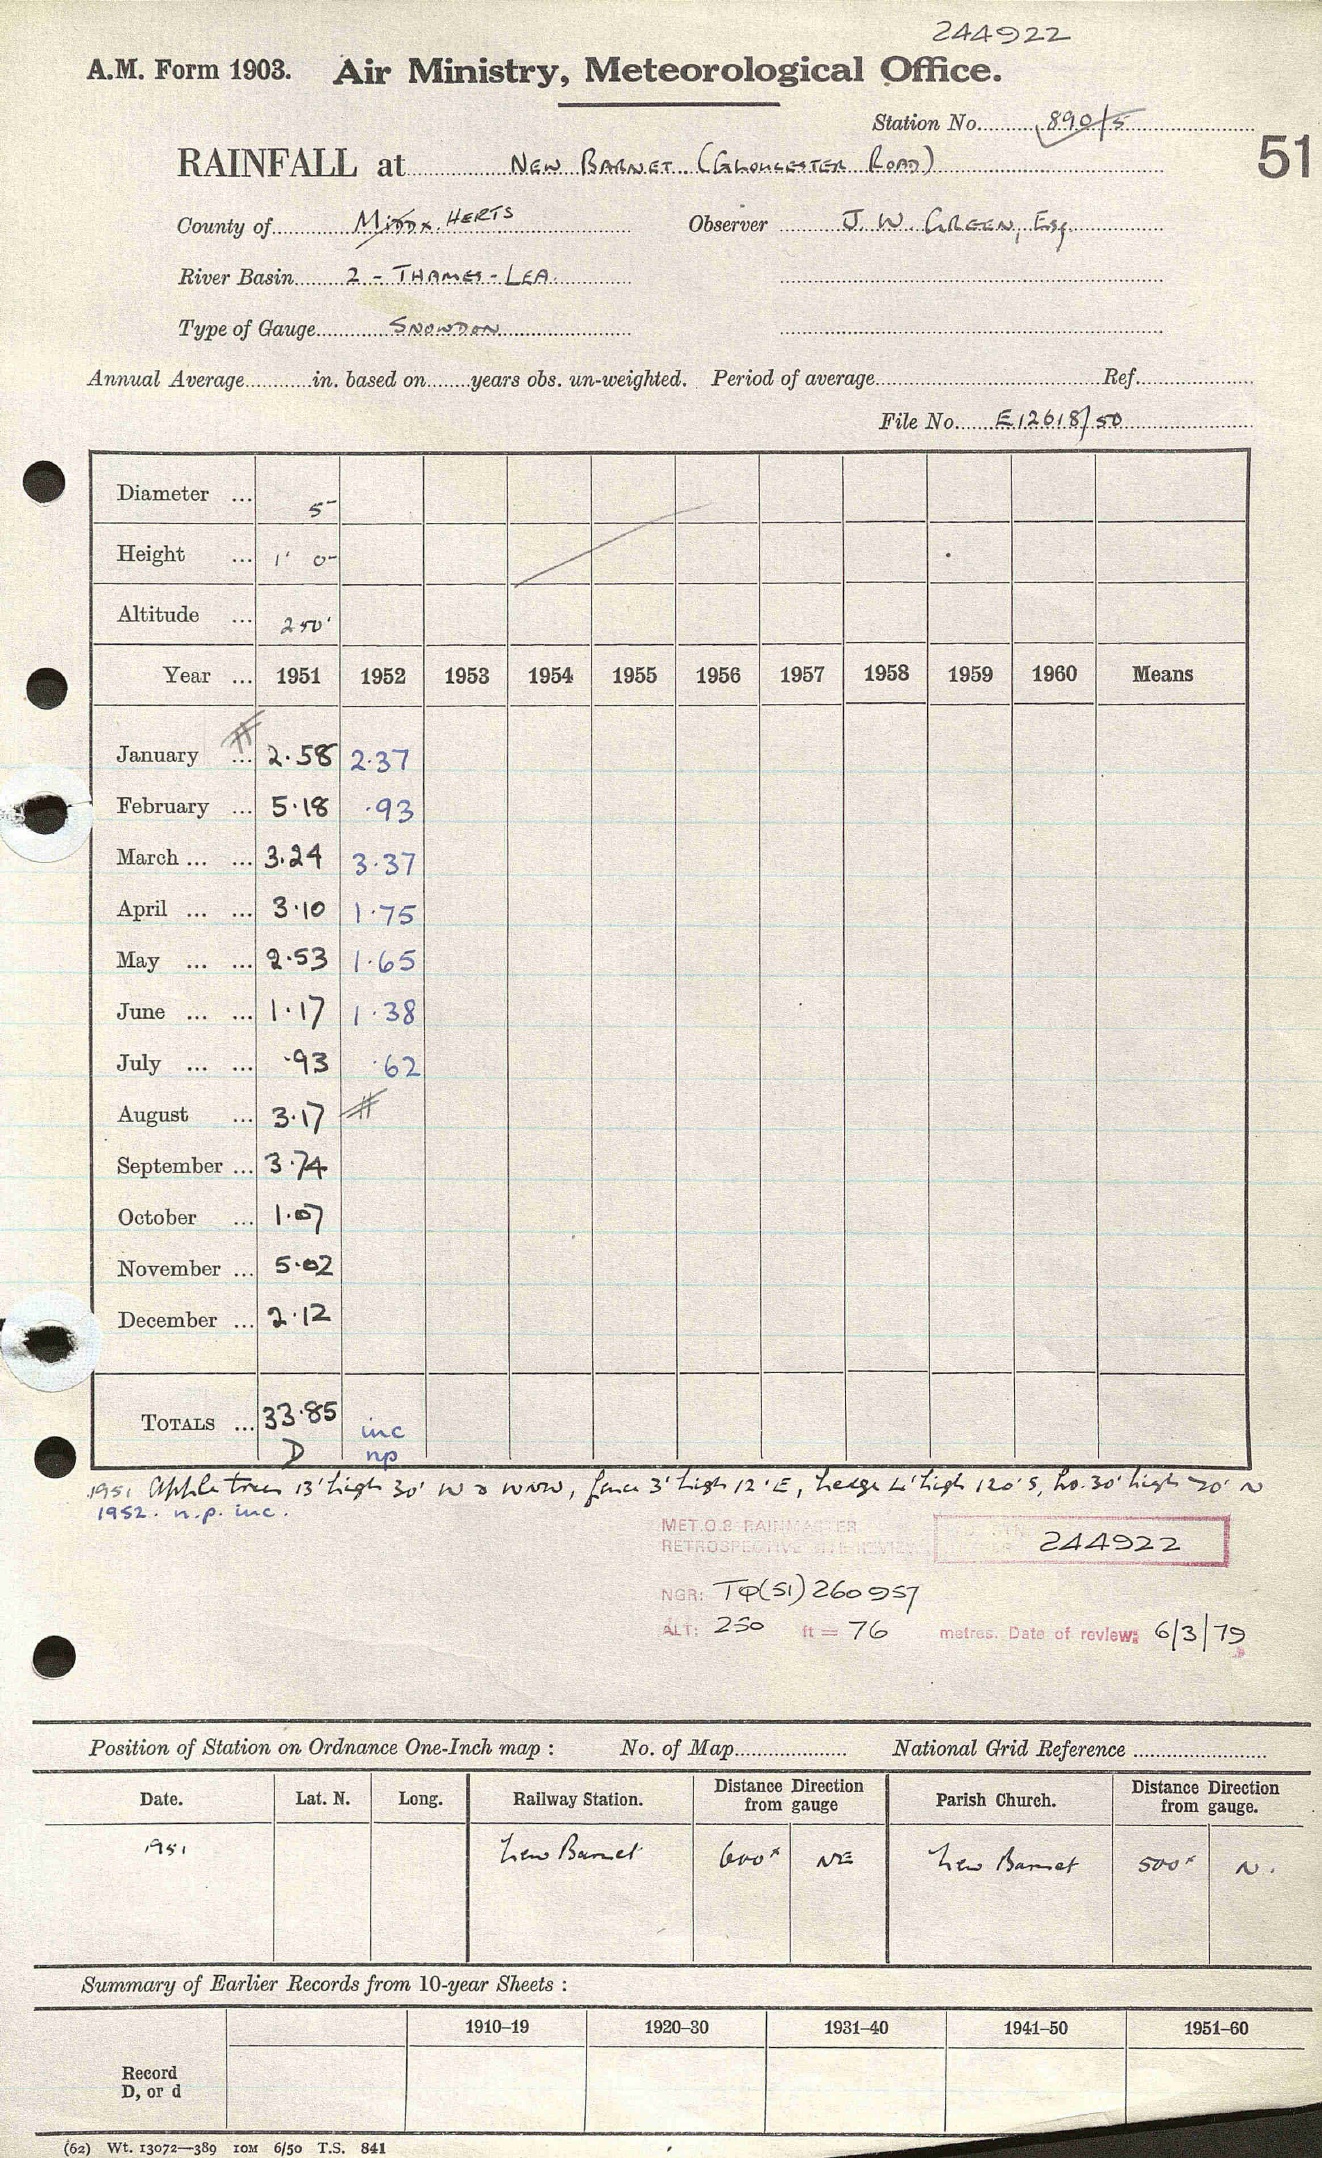 244922
A.M. Form 1903. Air Ministry, Meteorological Office.
Station No. 890/5
51
RAINFALL at NEW BARNET (GLOUCESTER ROAD)
County of Middx. HERTS Observer J. W. GREEN, Esq.
River Basin 2 - THAMES - LEA.
Type of Gauge SNOWDON
Annual Average in. based on years obs. un-weighted. Period of average Ref.
File No. E12618/50
Diameter ... 5"
Height ... 1' 0"
Altitude ... 250'
Year ... 1951 1952 1953 1954 1955 1956 1957 1958 1959 1960 Means
January ... 2.58 2.37
February ... 5.18 .93
March ... ... 3.24 3.37
April ... ... 3.10 1.75
May ... ... 2.53 1.65
June ... ... 1.17 1.38
July ... ... .93 .62
August ... 3.17
September ... 3.74
October ... 1.07
November ... 5.02
December ... 2.12
TOTALS ... 33.85 inc
D np
1951 Apple trees 13' high 30' W & WNW, fence 3' high 12' E, hedge 4' high 120' S, ho. 30' high 70' N
1952. n.p. inc.
MET.O.8 RAINMASTER
RETROSPECTIVE SITE REVIEW 244922
NGR: TQ(51)260957
ALT: 250 ft = 76 metres. Date of review: 6/3/79
Position of Station on Ordnance One-Inch map : No. of Map National Grid Reference
Date. Lat. N. Long. Railway Station. Distance Direction from gauge Parish Church. Distance Direction from gauge.
1951 New Barnet 600x NE New Barnet 500x N.
Summary of Earlier Records from 10-year Sheets :
1910–19 1920–30 1931–40 1941–50 1951–60
Record
D, or d
(62) Wt. 13072—389 10M 6/50 T.S. 841